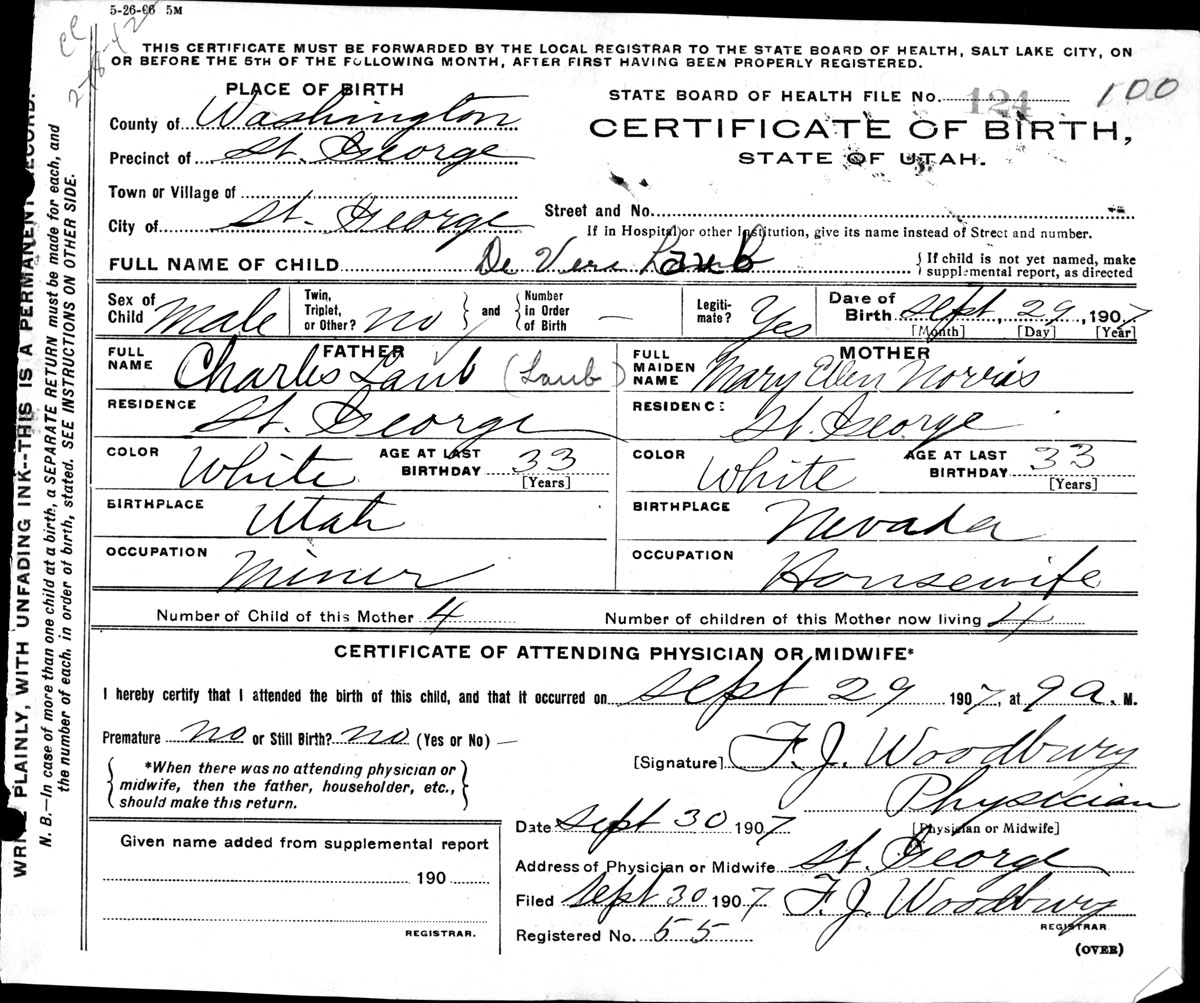 5-26-06 5M
cc
2-18-42
THIS CERTIFICATE MUST BE FORWARDED BY THE LOCAL REGISTRAR TO THE STATE BOARD OF HEALTH, SALT LAKE CITY, ON
OR BEFORE THE 5TH OF THE FOLLOWING MONTH, AFTER FIRST HAVING BEEN PROPERLY REGISTERED.
PLACE OF BIRTH
County of Washington
Precinct of St. George
Town or Village of
City of St. George
STATE BOARD OF HEALTH FILE No. 124 100
CERTIFICATE OF BIRTH,
STATE OF UTAH.
Street and No.
If in Hospital or other Institution, give its name instead of Street and number.
FULL NAME OF CHILD De Vere Laub { If child is not yet named, make
supplemental report, as directed
Sex of Child Male
Twin, Triplet, or Other? no } and { Number in Order of Birth —
Legiti-mate? Yes
Date of Birth Sept. 29, 1907
[Month] [Day] [Year]
FATHER
FULL NAME Charles Laub (Laub)
RESIDENCE St. George
COLOR White AGE AT LAST BIRTHDAY 33
[Years]
BIRTHPLACE Utah
OCCUPATION Miner
MOTHER
FULL MAIDEN NAME Mary Ellen Norris
RESIDENCE St. George
COLOR White AGE AT LAST BIRTHDAY 33
[Years]
BIRTHPLACE Nevada
OCCUPATION Housewife
Number of Child of this Mother 4 Number of children of this Mother now living 4
CERTIFICATE OF ATTENDING PHYSICIAN OR MIDWIFE*
I hereby certify that I attended the birth of this child, and that it occurred on Sept 29 1907, at 9 a. M.
Premature no or Still Birth? no (Yes or No) —
*When there was no attending physician or
midwife, then the father, householder, etc.,
should make this return.
[Signature] F. J. Woodbury
Physician
[Physician or Midwife]
Date Sept 30 1907
Address of Physician or Midwife St. George
Filed Sept 30 1907 F. J. Woodbury
REGISTRAR
Registered No. 55
(OVER)
Given name added from supplemental report
190
REGISTRAR.
WRITE PLAINLY, WITH UNFADING INK--THIS IS A PERMANENT RECORD.
N. B.—In case of more than one child at a birth, a SEPARATE RETURN must be made for each, and
the number of each, in order of birth, stated. SEE INSTRUCTIONS ON OTHER SIDE.